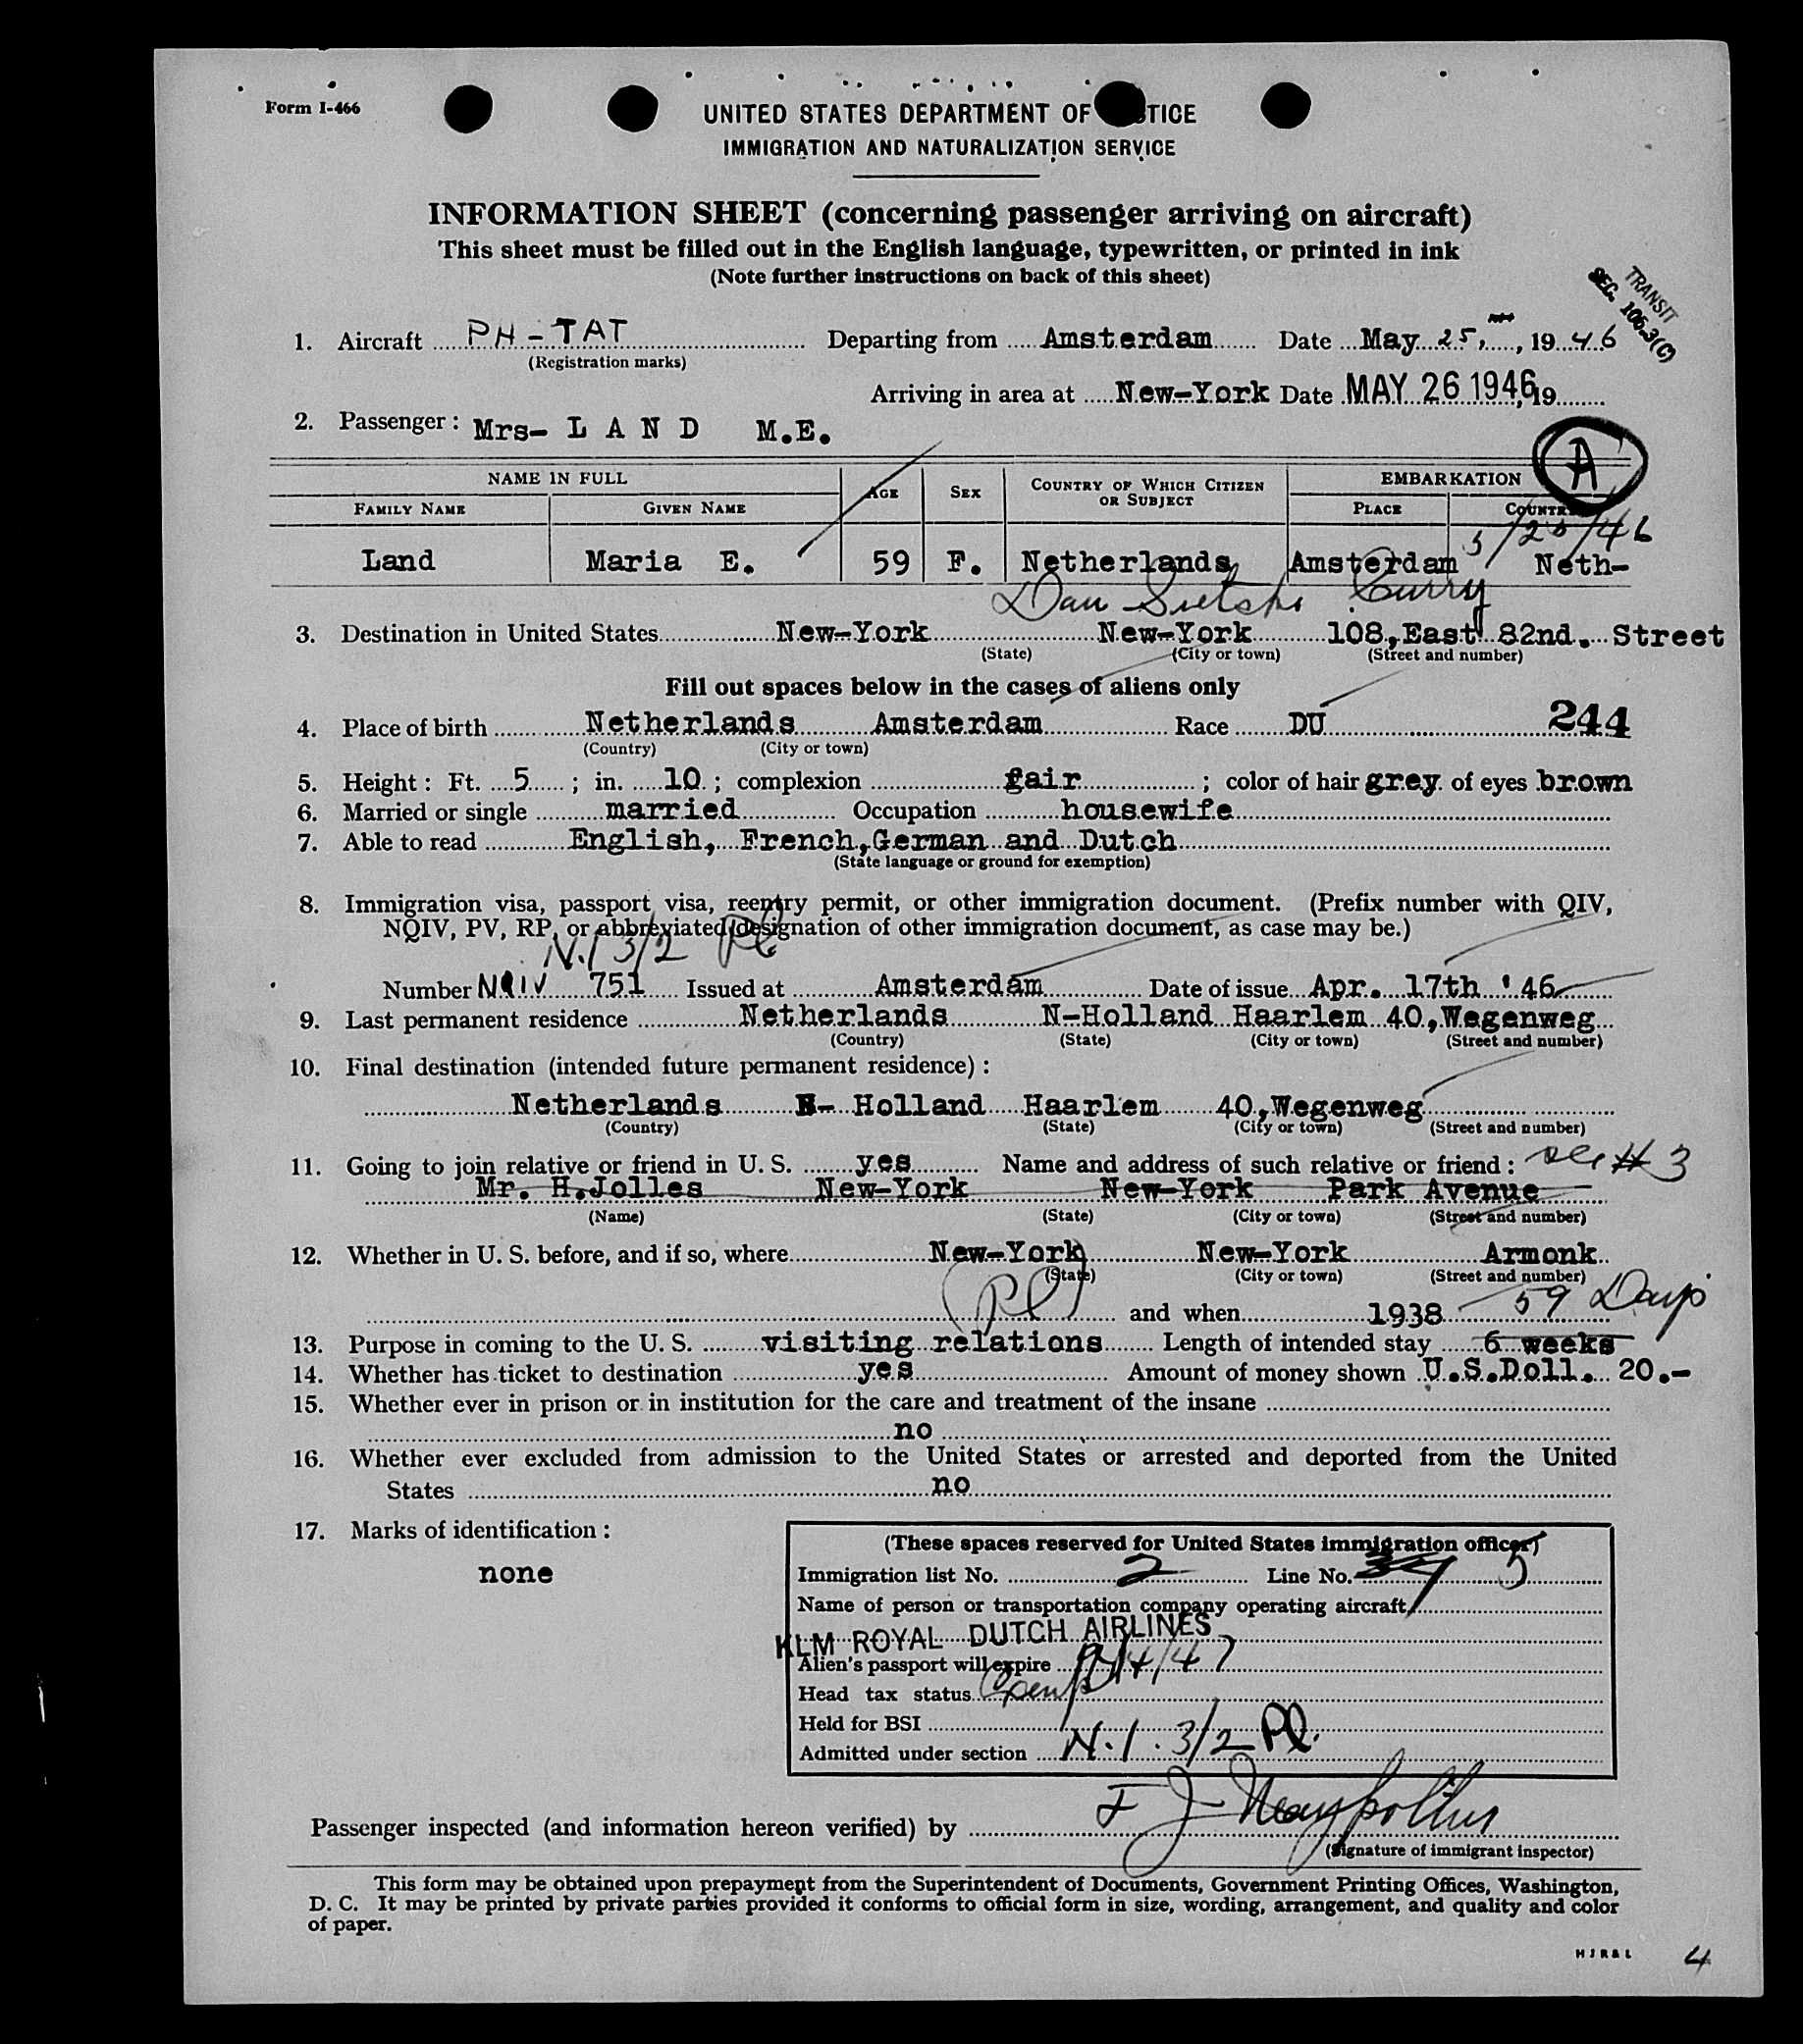 Form I-466
UNITED STATES DEPARTMENT OF TICE
IMMIGRATION AND NATURALIZATION SERVICE
INFORMATION SHEET (concerning passenger arriving on aircraft)
This sheet must be filled out in the English language, typewritten, or printed in ink
(Note further instructions on back of this sheet)
TRANSIT
SEC. 106.3(C)
1. Aircraft PH-TAT Departing from Amsterdam Date May 25, 1946
(Registration marks)
Arriving in area at New-York Date MAY 26 1946, 19
2. Passenger: Mrs- L A N D M.E.
A
NAME IN FULL AGE SEX COUNTRY OF WHICH CITIZEN OR SUBJECT EMBARKATION
FAMILY NAME GIVEN NAME PLACE COUNTRY
Land Maria E. 59 F. Netherlands Amsterdam Neth-
Curry
3. Destination in United States New-York New-York 108, East 82nd. Street
(State) (City or town) (Street and number)
Fill out spaces below in the cases of aliens only
4. Place of birth Netherlands Amsterdam Race DU 244
(Country) (City or town)
5. Height: Ft. 5; in. 10; complexion fair; color of hair grey of eyes brown
6. Married or single married Occupation housewife
7. Able to read English, French, German and Dutch
(State language or ground for exemption)
8. Immigration visa, passport visa, reentry permit, or other immigration document. (Prefix number with QIV,
NQIV, PV, RP, or abbreviated designation of other immigration document, as case may be.)
N.1 3/2 Pl
Number NQIV 751 Issued at Amsterdam Date of issue Apr. 17th '46
9. Last permanent residence Netherlands N-Holland Haarlem 40, Wegenweg
(Country) (State) (City or town) (Street and number)
10. Final destination (intended future permanent residence):
Netherlands N- Holland Haarlem 40, Wegenweg
(Country) (State) (City or town) (Street and number)
11. Going to join relative or friend in U. S. yes Name and address of such relative or friend: see # 3
Mr. H.Jolles New-York New-York Park Avenue
(Name) (State) (City or town) (Street and number)
12. Whether in U. S. before, and if so, where New-York New-York Armonk
(State) (City or town) (Street and number)
Pl and when 1938 59 Days
13. Purpose in coming to the U. S. visiting relations Length of intended stay 6 weeks
14. Whether has ticket to destination yes Amount of money shown U.S.Doll. 20.-
15. Whether ever in prison or in institution for the care and treatment of the insane
no
16. Whether ever excluded from admission to the United States or arrested and deported from the United
States no
17. Marks of identification:
none
(These spaces reserved for United States immigration officer)
Immigration list No. 2 Line No. 5
Name of person or transportation company operating aircraft
KLM ROYAL DUTCH AIRLINES
Alien's passport will expire
Head tax status
Held for BSI
Admitted under section N.1. 3/2 Pl.
Passenger inspected (and information hereon verified) by
(Signature of immigrant inspector)
This form may be obtained upon prepayment from the Superintendent of Documents, Government Printing Offices, Washington,
D. C. It may be printed by private parties provided it conforms to official form in size, wording, arrangement, and quality and color
of paper.
H J R & L 4